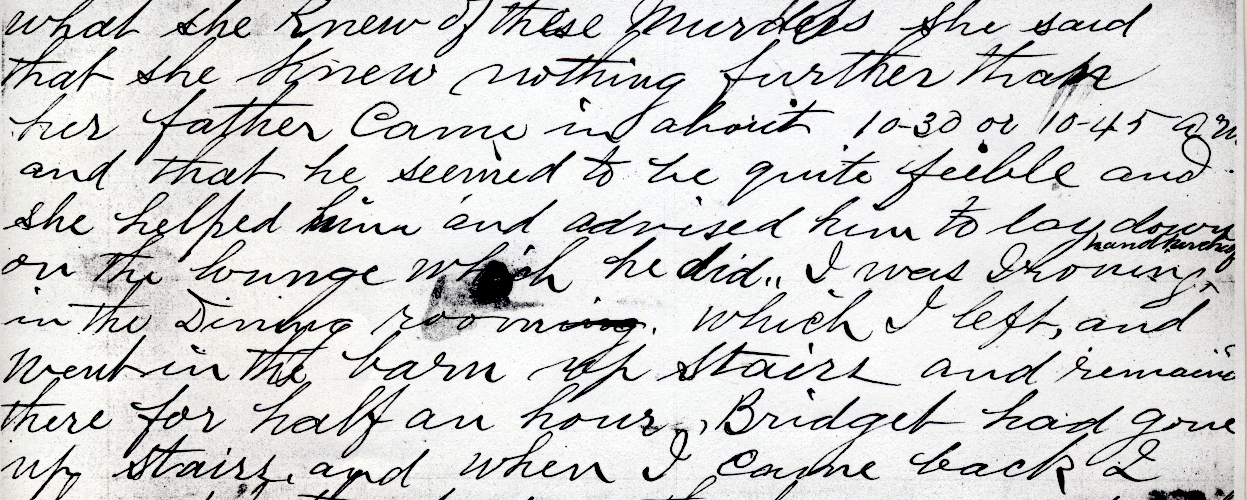 what she knew of these Murders she said
that she Knew nothing further than
her father Came in about 10-30 or 10-45 a.m.
and that he seemed to be quite feeble and
she helped him and advised him to lay down
handkerchiefs
on the lounge which he did,, I was Ironing
in the Dining rooming. which I left, and
went in the barn up Stairs and remained
there for half an hour, Bridget had gone
up Stairs, and when I came back I